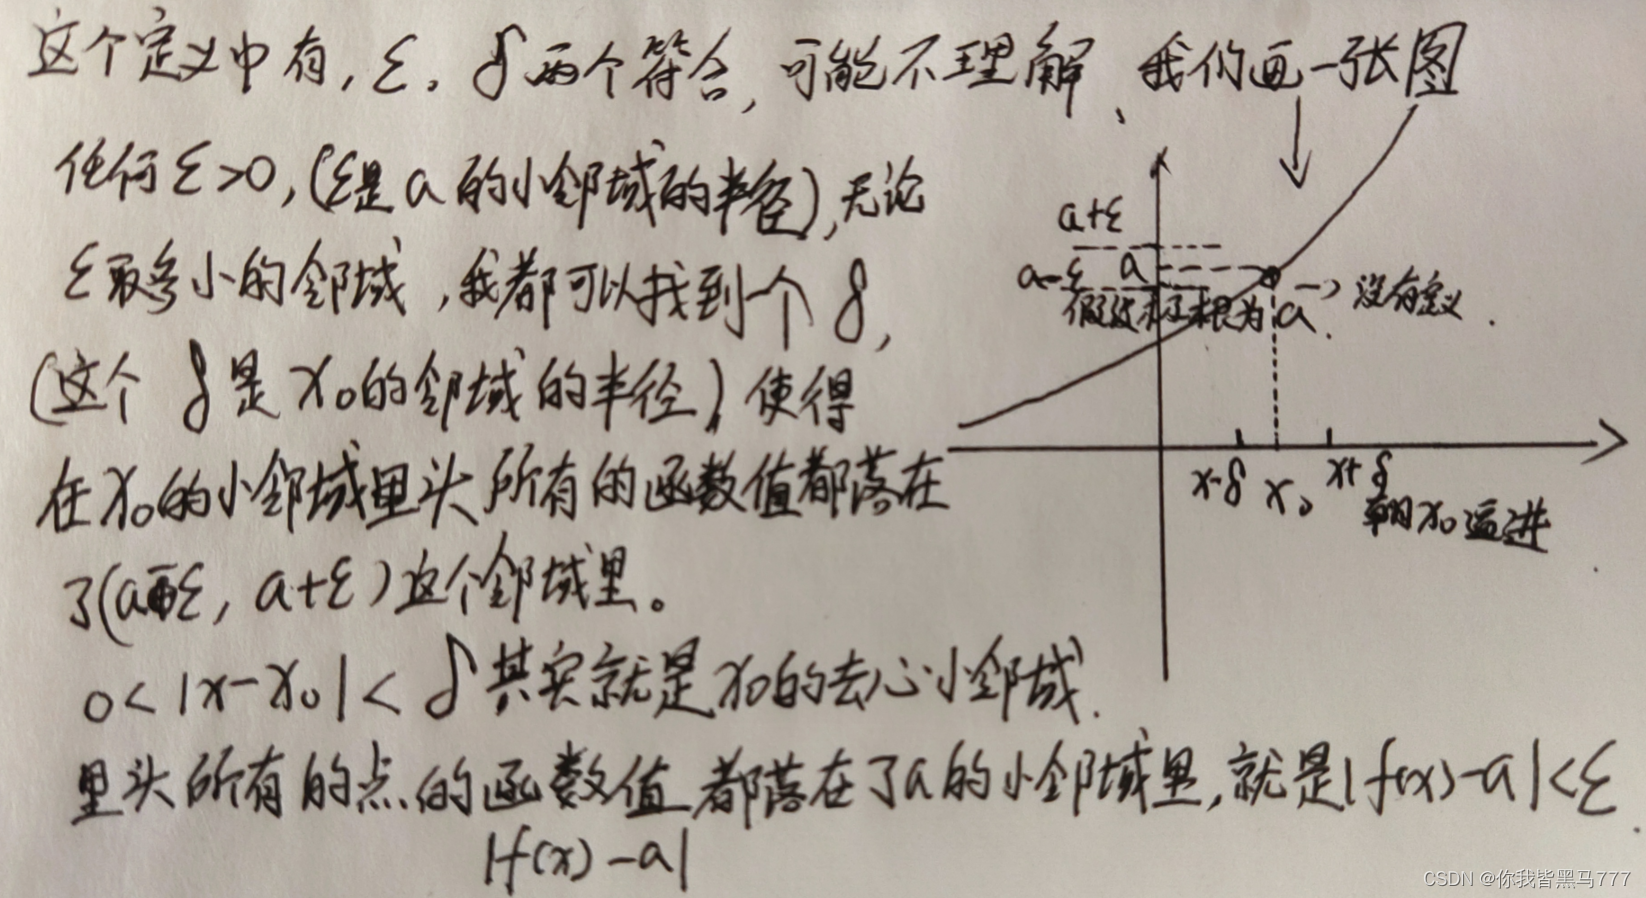 这个定义中有，ε，δ两个符合，可能不理解、我们画一张图
任何ε>0，(ε是a的小邻域的半径)，无论
ε取多小的邻域，我都可以找到一个δ，
(这个δ是x₀的邻域的半径)使得
在x₀的小邻域里头所有的函数值都落在
了(a-ε，a+ε)这个邻域里。
0<|x-x₀|<δ其实就是x₀的去心小邻域.
里头所有的点的函数值都落在了a的小邻域里，就是|f(x)-a|<ε
|f(x)-a|
a+ε
a
a-ε
假设 极 为a.
→没有定义.
x-δ
x₀
x+δ
朝x₀逼进
CSDN @你我皆黑马777